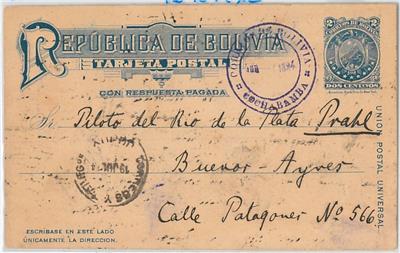 REPÚBLICA DE BOLIVIA
TARJETA POSTAL
CON RESPUESTA PAGADA
2 2
DOS CENTAVOS
CORREOS DE BOLIVIA
1894
COCHABAMBA
Sr. Piloto del Rio de la Plata Prahl
Buenos-Ayres
Calle Patagones No 566
UNION POSTAL UNIVERSAL
CORREOS Y
ESCRÍBASE EN ESTE LADO
ÚNICAMENTE LA DIRECCION.